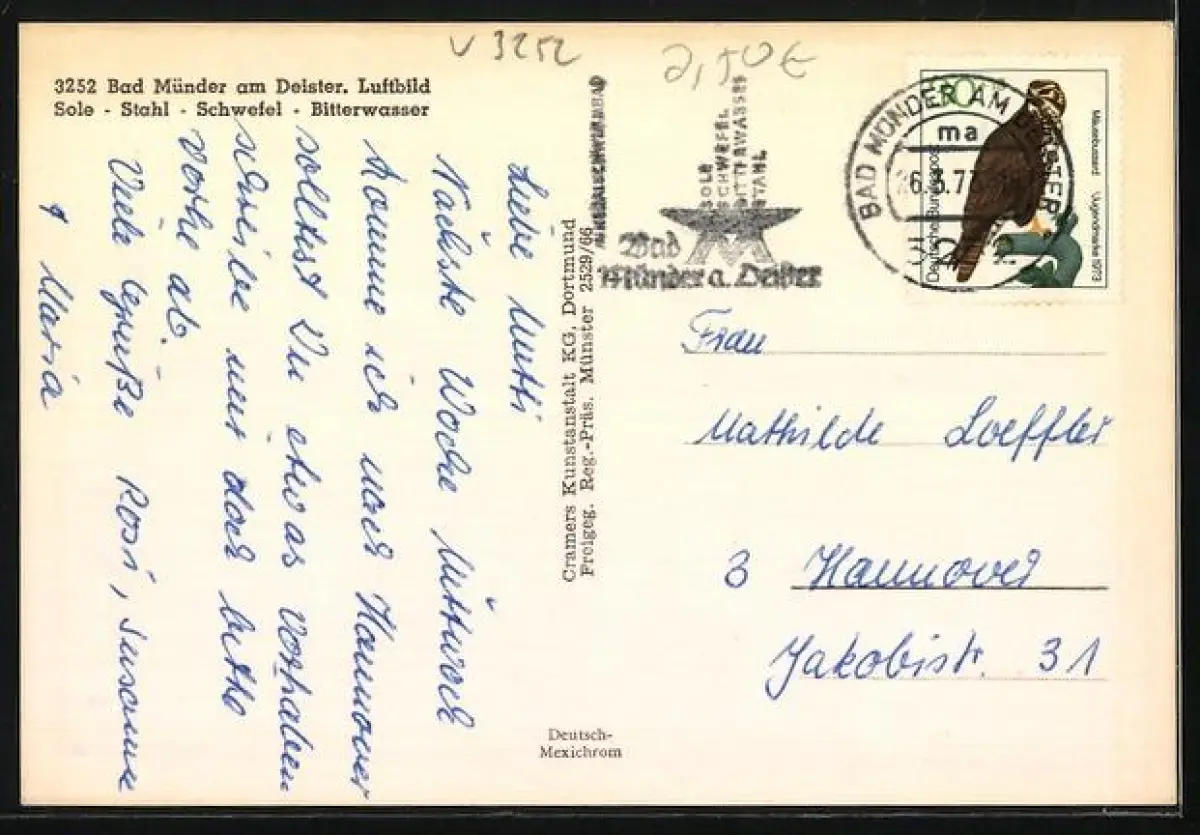 V 3252
2,50€
3252 Bad Münder am Deister. Luftbild
Sole - Stahl - Schwefel - Bitterwasser
Liebe Mutti
Nächste Woche Mittwoch
komme ich nach Hannover
solltest Du etwas vorhaben
schreibe mir doch bitte
vorhe ab.
Viele Grüße Rosi, Susanne
Maria
Cramers Kunstanstalt KG, Dortmund
Freigeg. Reg.-Präs. Münster 2529/66
Deutsch-
Mexichrom
SOLE
SCHWEFEL
BITTERWASSER
STAHL
Bad
Münder a. Deister
BAD MÜNDER AM DEISTER
ma
Deutsche Bundespost
Mäusebussard Jugendmarke 1973
Frau
Mathilde Loeffler
3 Hannover
Jakobistr. 31